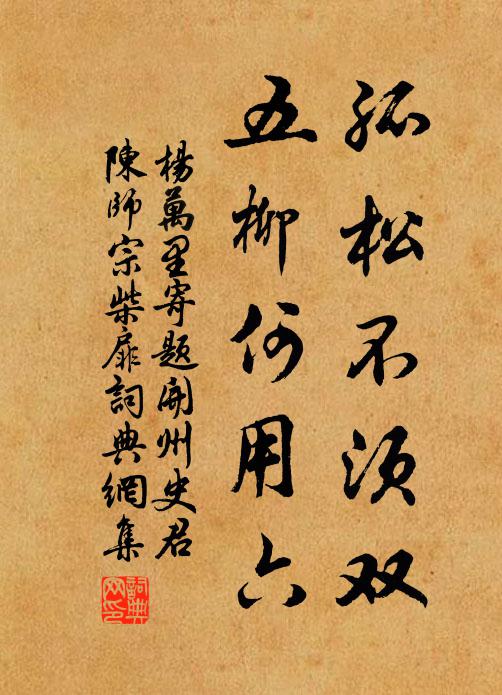 孤松不须双
五柳何用六
楊萬里寄題開州史君
陳師宗柴扉詞典網集
詞典网印